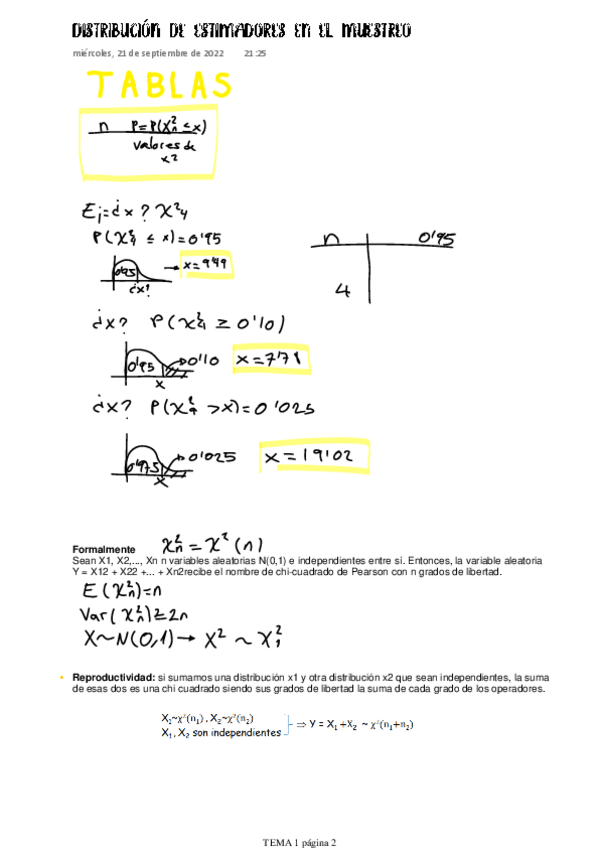 DISTRIBUCIÓN DE ESTIMADORES EN EL MUESTREO
miércoles, 21 de septiembre de 2022 21:25
TABLAS
n P=P(χ²n ≤x)
valores de
x2
Ej=¿x? χ²4
P(χ²4 ≤ x)=0'95
n 0'95
0'95 → x=9'49
¿x?
4
¿x? P(χ²4 ≥ 0'10)
0'95 0'10 x=7'78
x
¿x? P(χ² >x)=0'025
0'975 0'025 x=19'02
x
Formalmente χ²n = χ²(n)
Sean X1, X2,..., Xn n variables aleatorias N(0,1) e independientes entre sí. Entonces, la variable aleatoria
Y = X12 + X22 +... + Xn2recibe el nombre de chi-cuadrado de Pearson con n grados de libertad.
E(χ²n)=n
Var(χ²n)=2n
X~N(0,1)→ X² ~ χ²1
• Reproductividad: si sumamos una distribución x1 y otra distribución x2 que sean independientes, la suma
de esas dos es una chi cuadrado siendo sus grados de libertad la suma de cada grado de los operadores.
X₁~χ²(n₁), X₂~χ²(n₂)
X₁, X₂ son independientes ⇒ Y = X₁ +X₂ ~ χ²(n₁+n₂)
TEMA 1 página 2